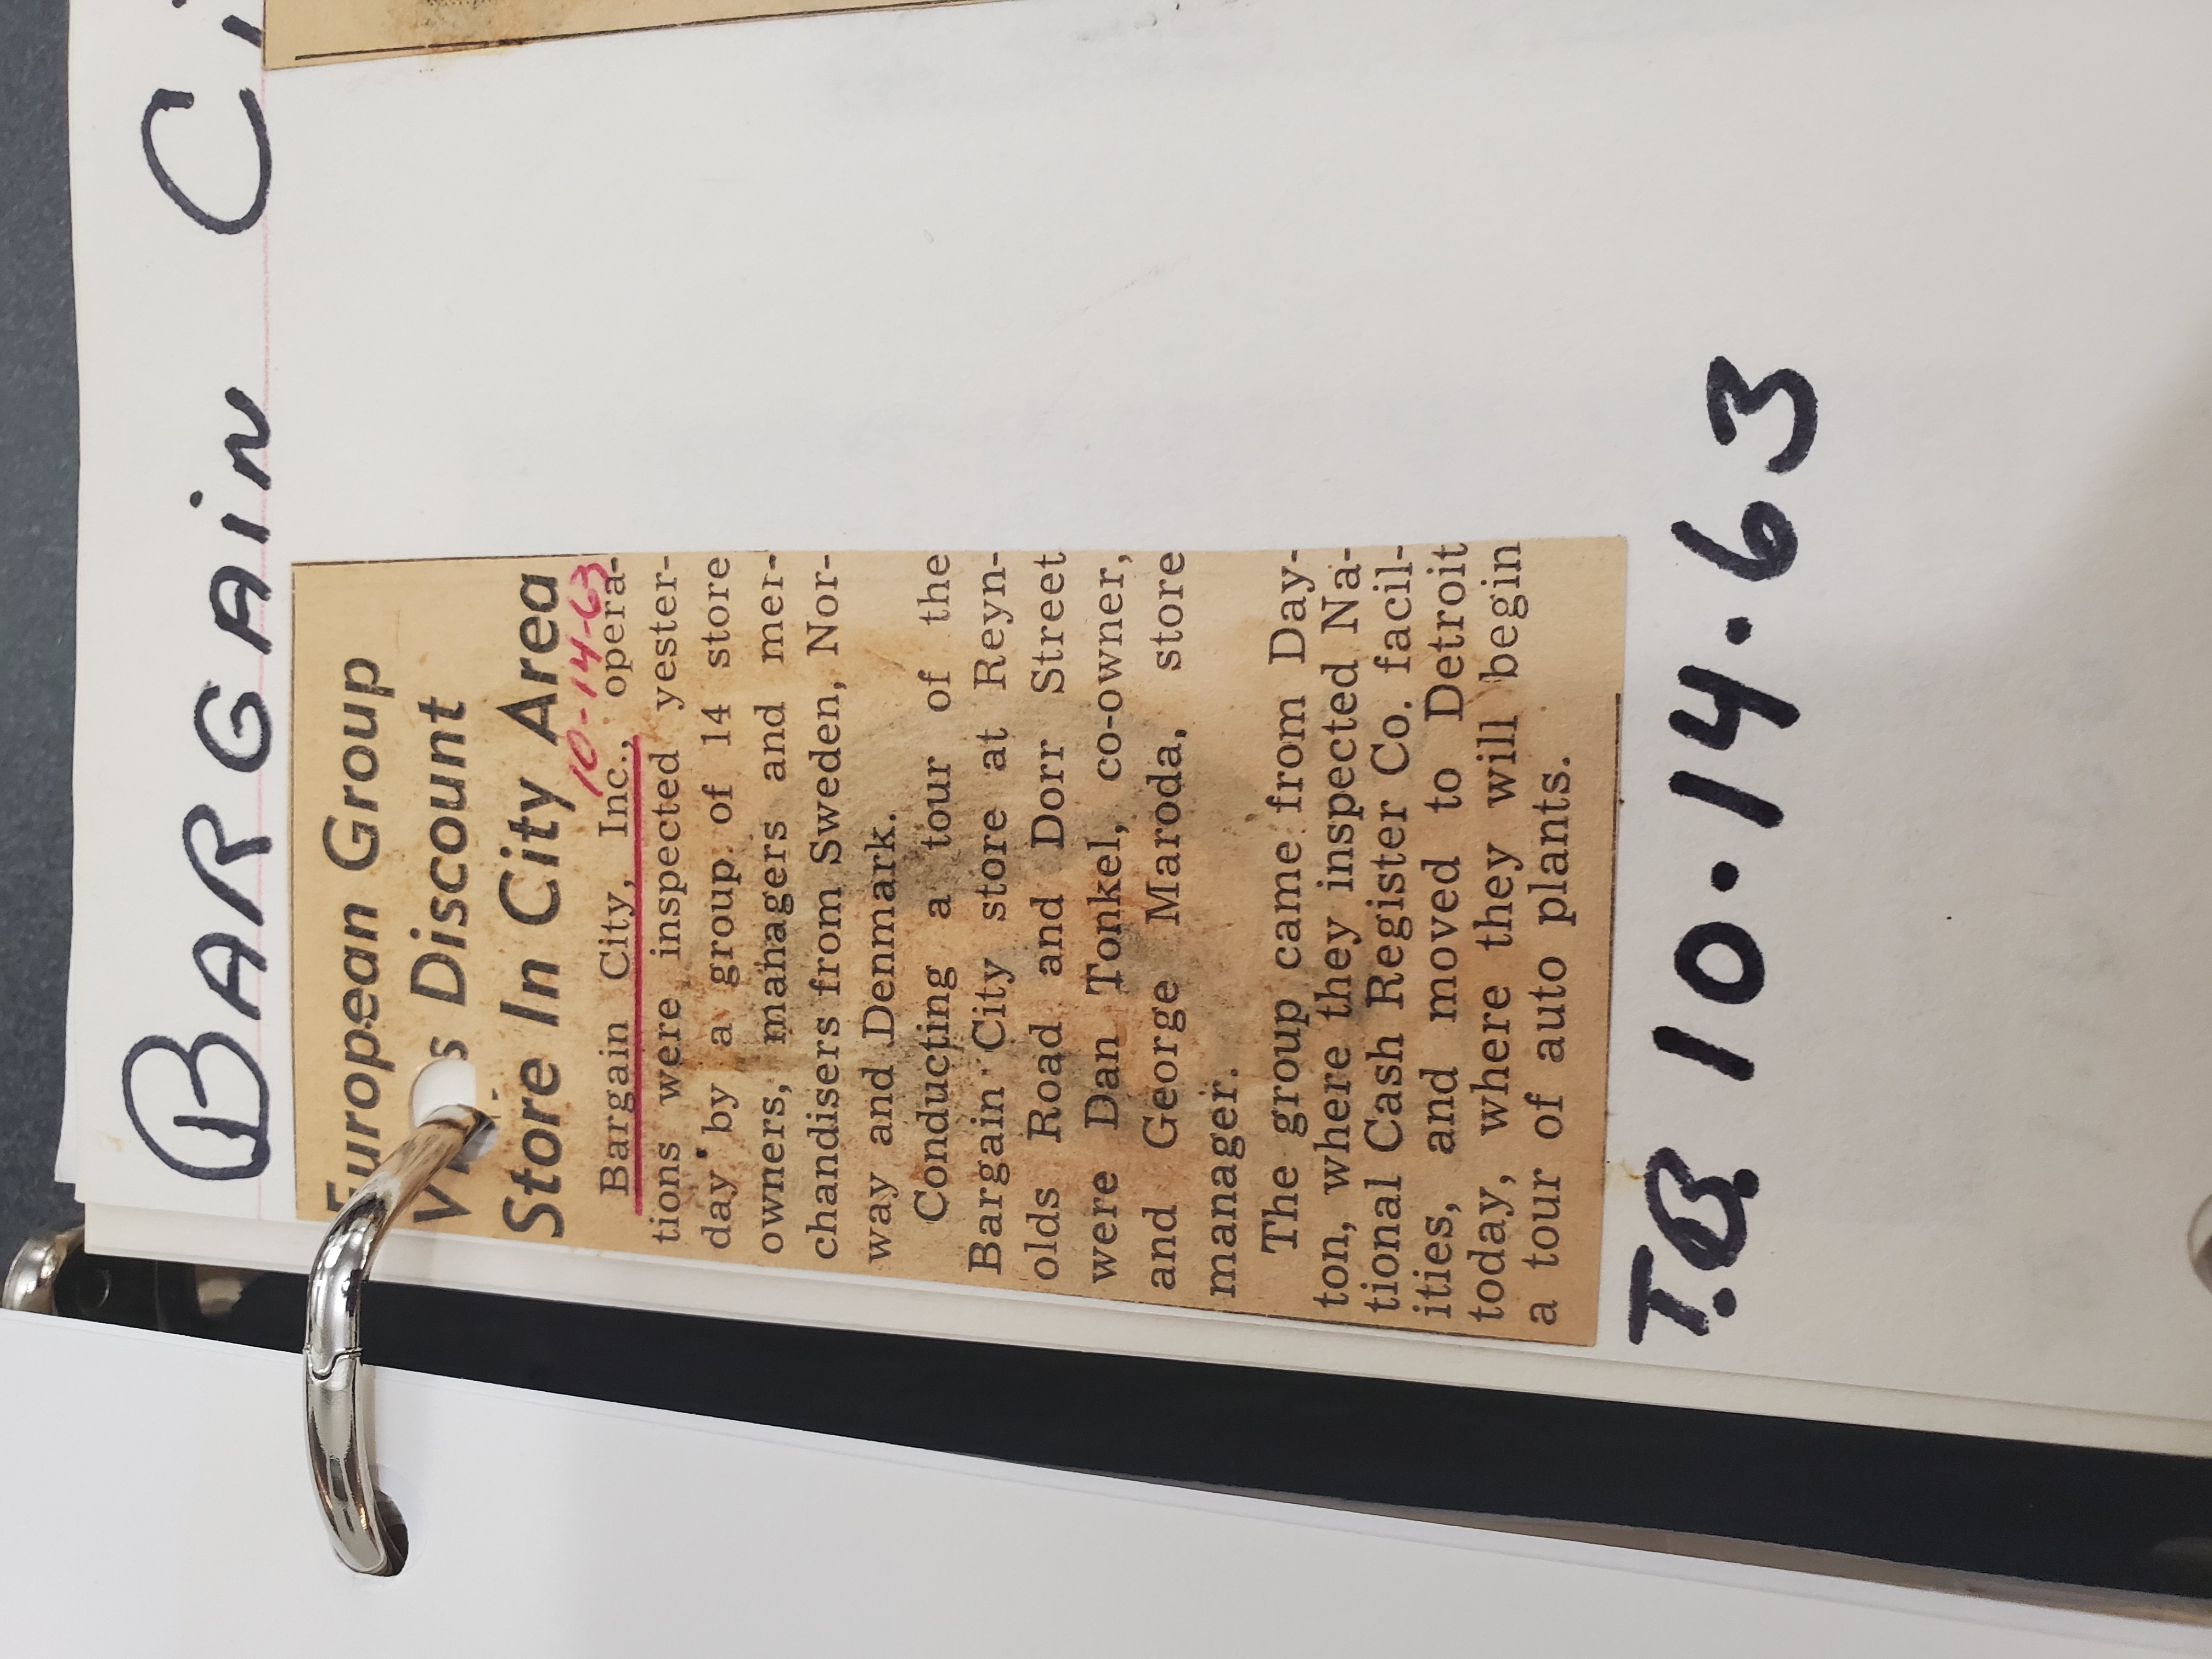 BARGAIN
European Group
Discount
Store In City Area
10-14-63
Bargain City, Inc., opera-
tions were inspected yester-
day by a group of 14 store
owners, managers and mer-
chandisers from Sweden, Nor-
way and Denmark.
Conducting a tour of the
Bargain City store at Reyn-
olds Road and Dorr Street
were Dan Tonkel, co-owner,
and George Maroda, store
manager.
The group came from Day-
ton, where they inspected Na-
tional Cash Register Co. facil-
ities, and moved to Detroit
today, where they will begin
a tour of auto plants.
T.B. 10.14.63